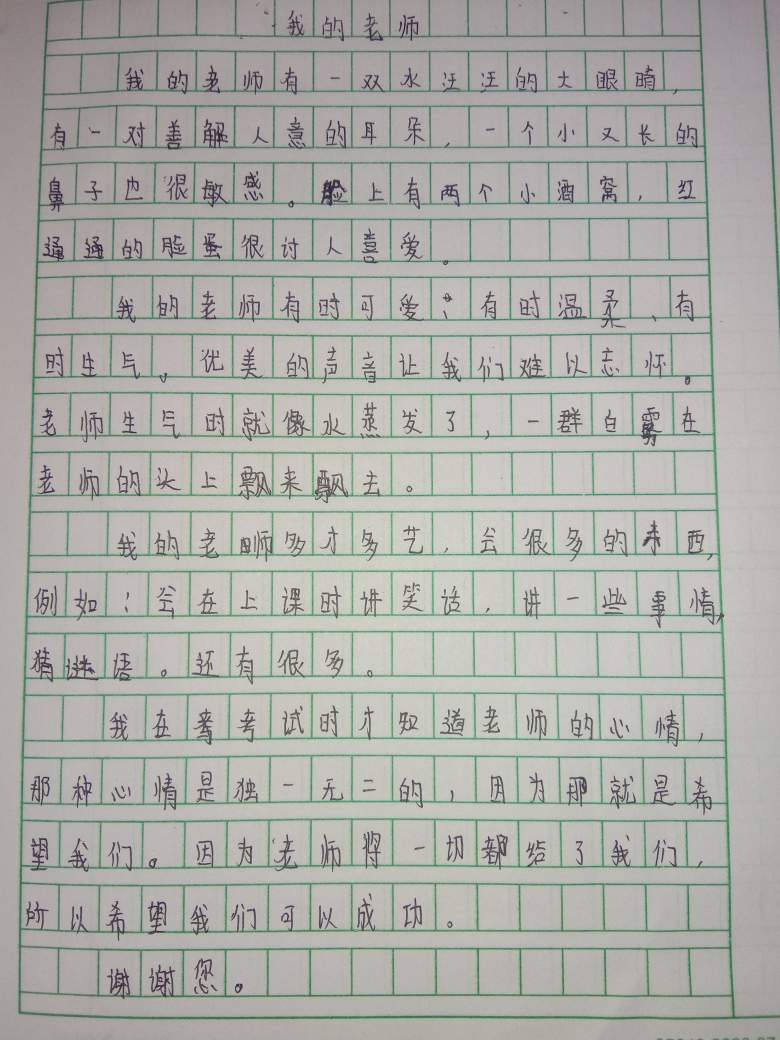 我的老师
我的老师有一双水汪汪的大眼睛,
有一对善解人意的耳朵,一个小又长的
鼻子也很敏感。脸上有两个小酒窝,红
通通的脸蛋很讨人喜爱。
我的老师有时可爱、有时温柔、有
时生气。优美的声音让我们难以忘怀。
老师生气时就像水蒸发了,一群白雾在
老师的头上飘来飘去。
我的老师多才多艺,会很多的东西,
例如:会在上课时讲笑话,讲一些事情,
猜谜语。还有很多。
我在考试时才知道老师的心情,
那种心情是独一无二的,因为那就是希
望我们。因为老师将一切都给了我们,
所以希望我们可以成功。
谢谢您。